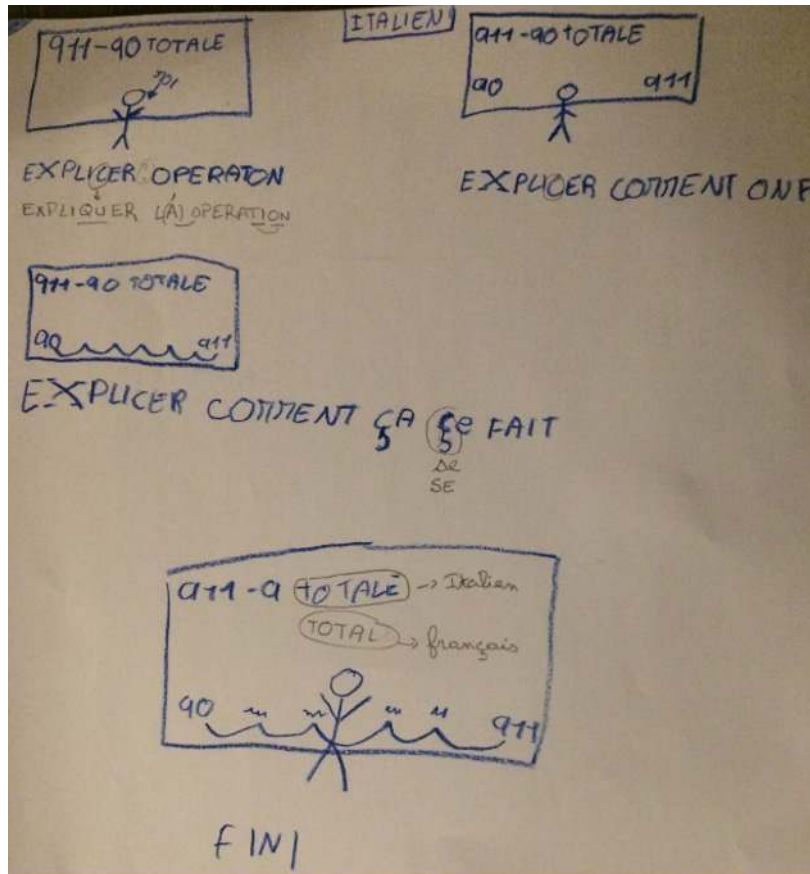 ITALIEN
911-90 TOTALE
EXPLICER OPERATON
EXPLIQUER L(A) OPERATION
911-90 TOTALE
90 911
EXPLICER COMMENT ON F
911-90 TOTALE
90 911
EXPLICER COMMENT ÇA Çe FAIT
se
SE
911-9 TOTALE → Italien
TOTAL → français
90 911
FINI